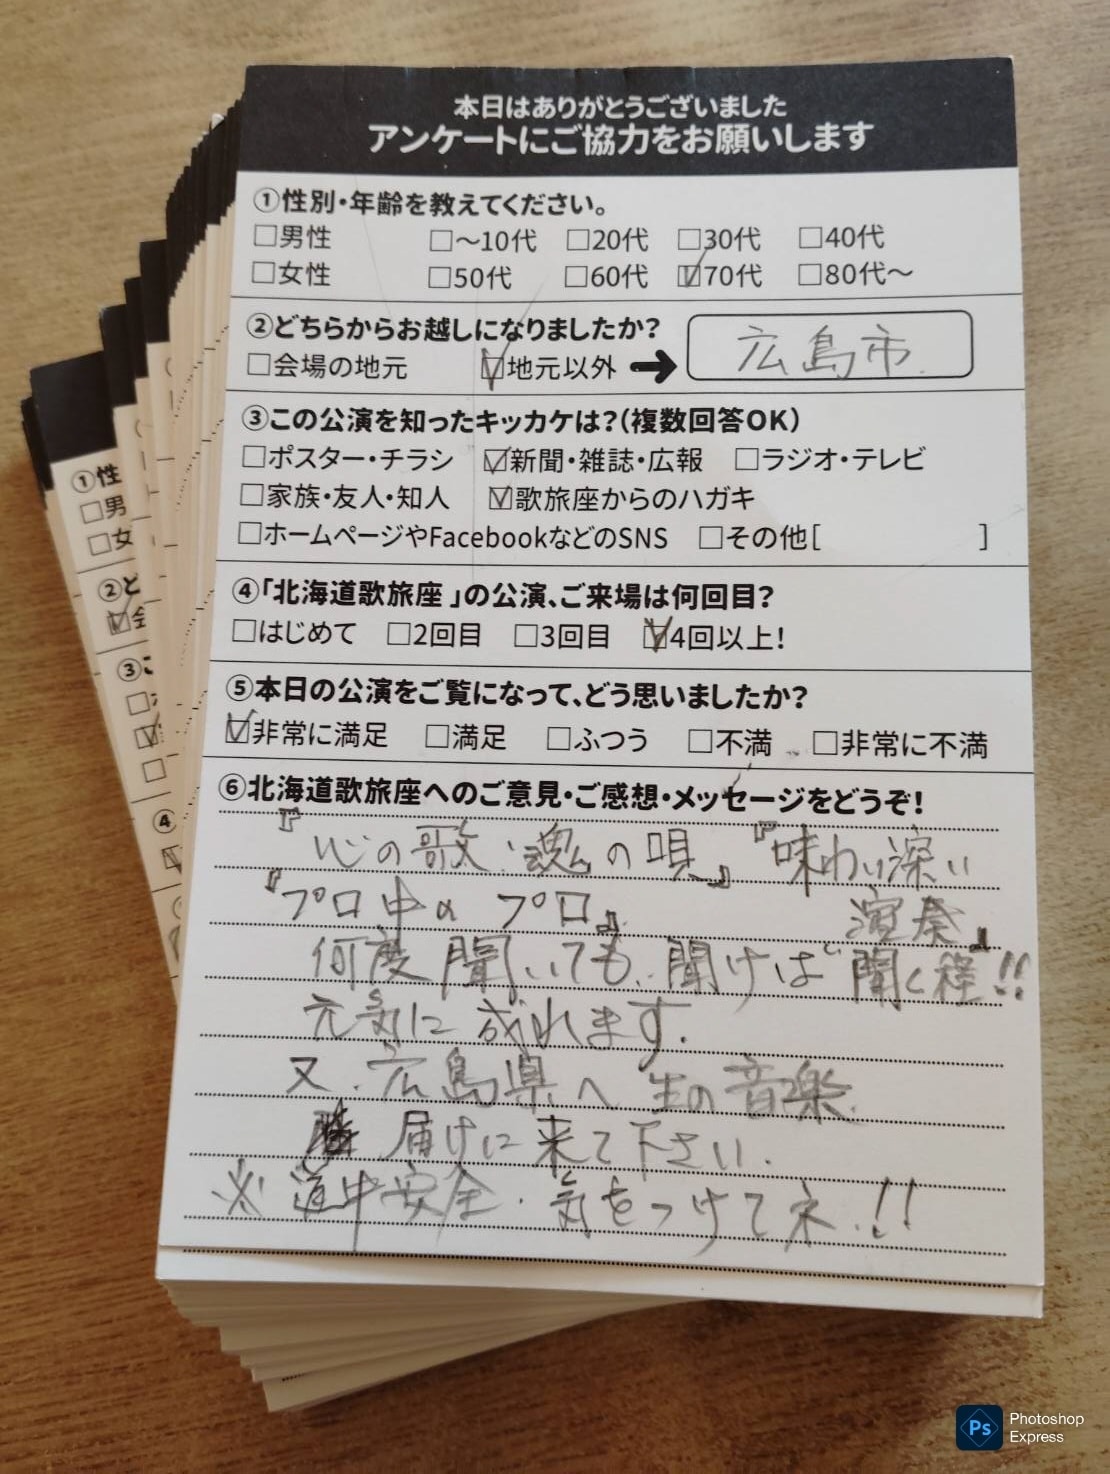 本日はありがとうございました
アンケートにご協力をお願いします
①性別・年齢を教えてください。
□男性 □〜10代 □20代 □30代 □40代
□女性 □50代 □60代 ☑70代 □80代〜
②どちらからお越しになりましたか？
□会場の地元 ☑地元以外 ➡ 広島市
③この公演を知ったキッカケは？（複数回答OK）
□ポスター・チラシ ☑新聞・雑誌・広報 □ラジオ・テレビ
□家族・友人・知人 ☑歌旅座からのハガキ
□ホームページやFacebookなどのSNS □その他[ ]
④「北海道歌旅座」の公演、ご来場は何回目？
□はじめて □2回目 □3回目 ☑4回以上！
⑤本日の公演をご覧になって、どう思いましたか？
☑非常に満足 □満足 □ふつう □不満 □非常に不満
⑥北海道歌旅座へのご意見・ご感想・メッセージをどうぞ！
『心の歌・魂の唄』『味わい深い
演奏』
『プロ中のプロ』
何度聞いても、聞けば聞く程!!
元気に成れます.
又、広島県へ生の音楽
届けに来て下さい.
※道中安全・気をつけてネ.!!
①性
□男
□女
②ど
☑会
③こ
④
Ps Photoshop
Express